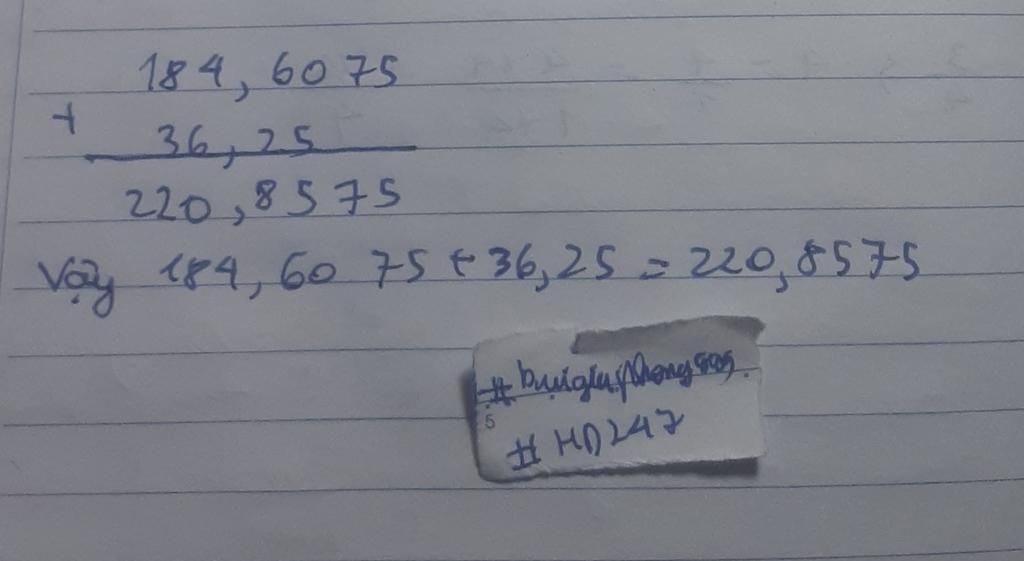 184, 6075
+
36, 25
220, 8575
Vậy 184, 60 75 + 36, 25 = 220, 8575
5
# HD247